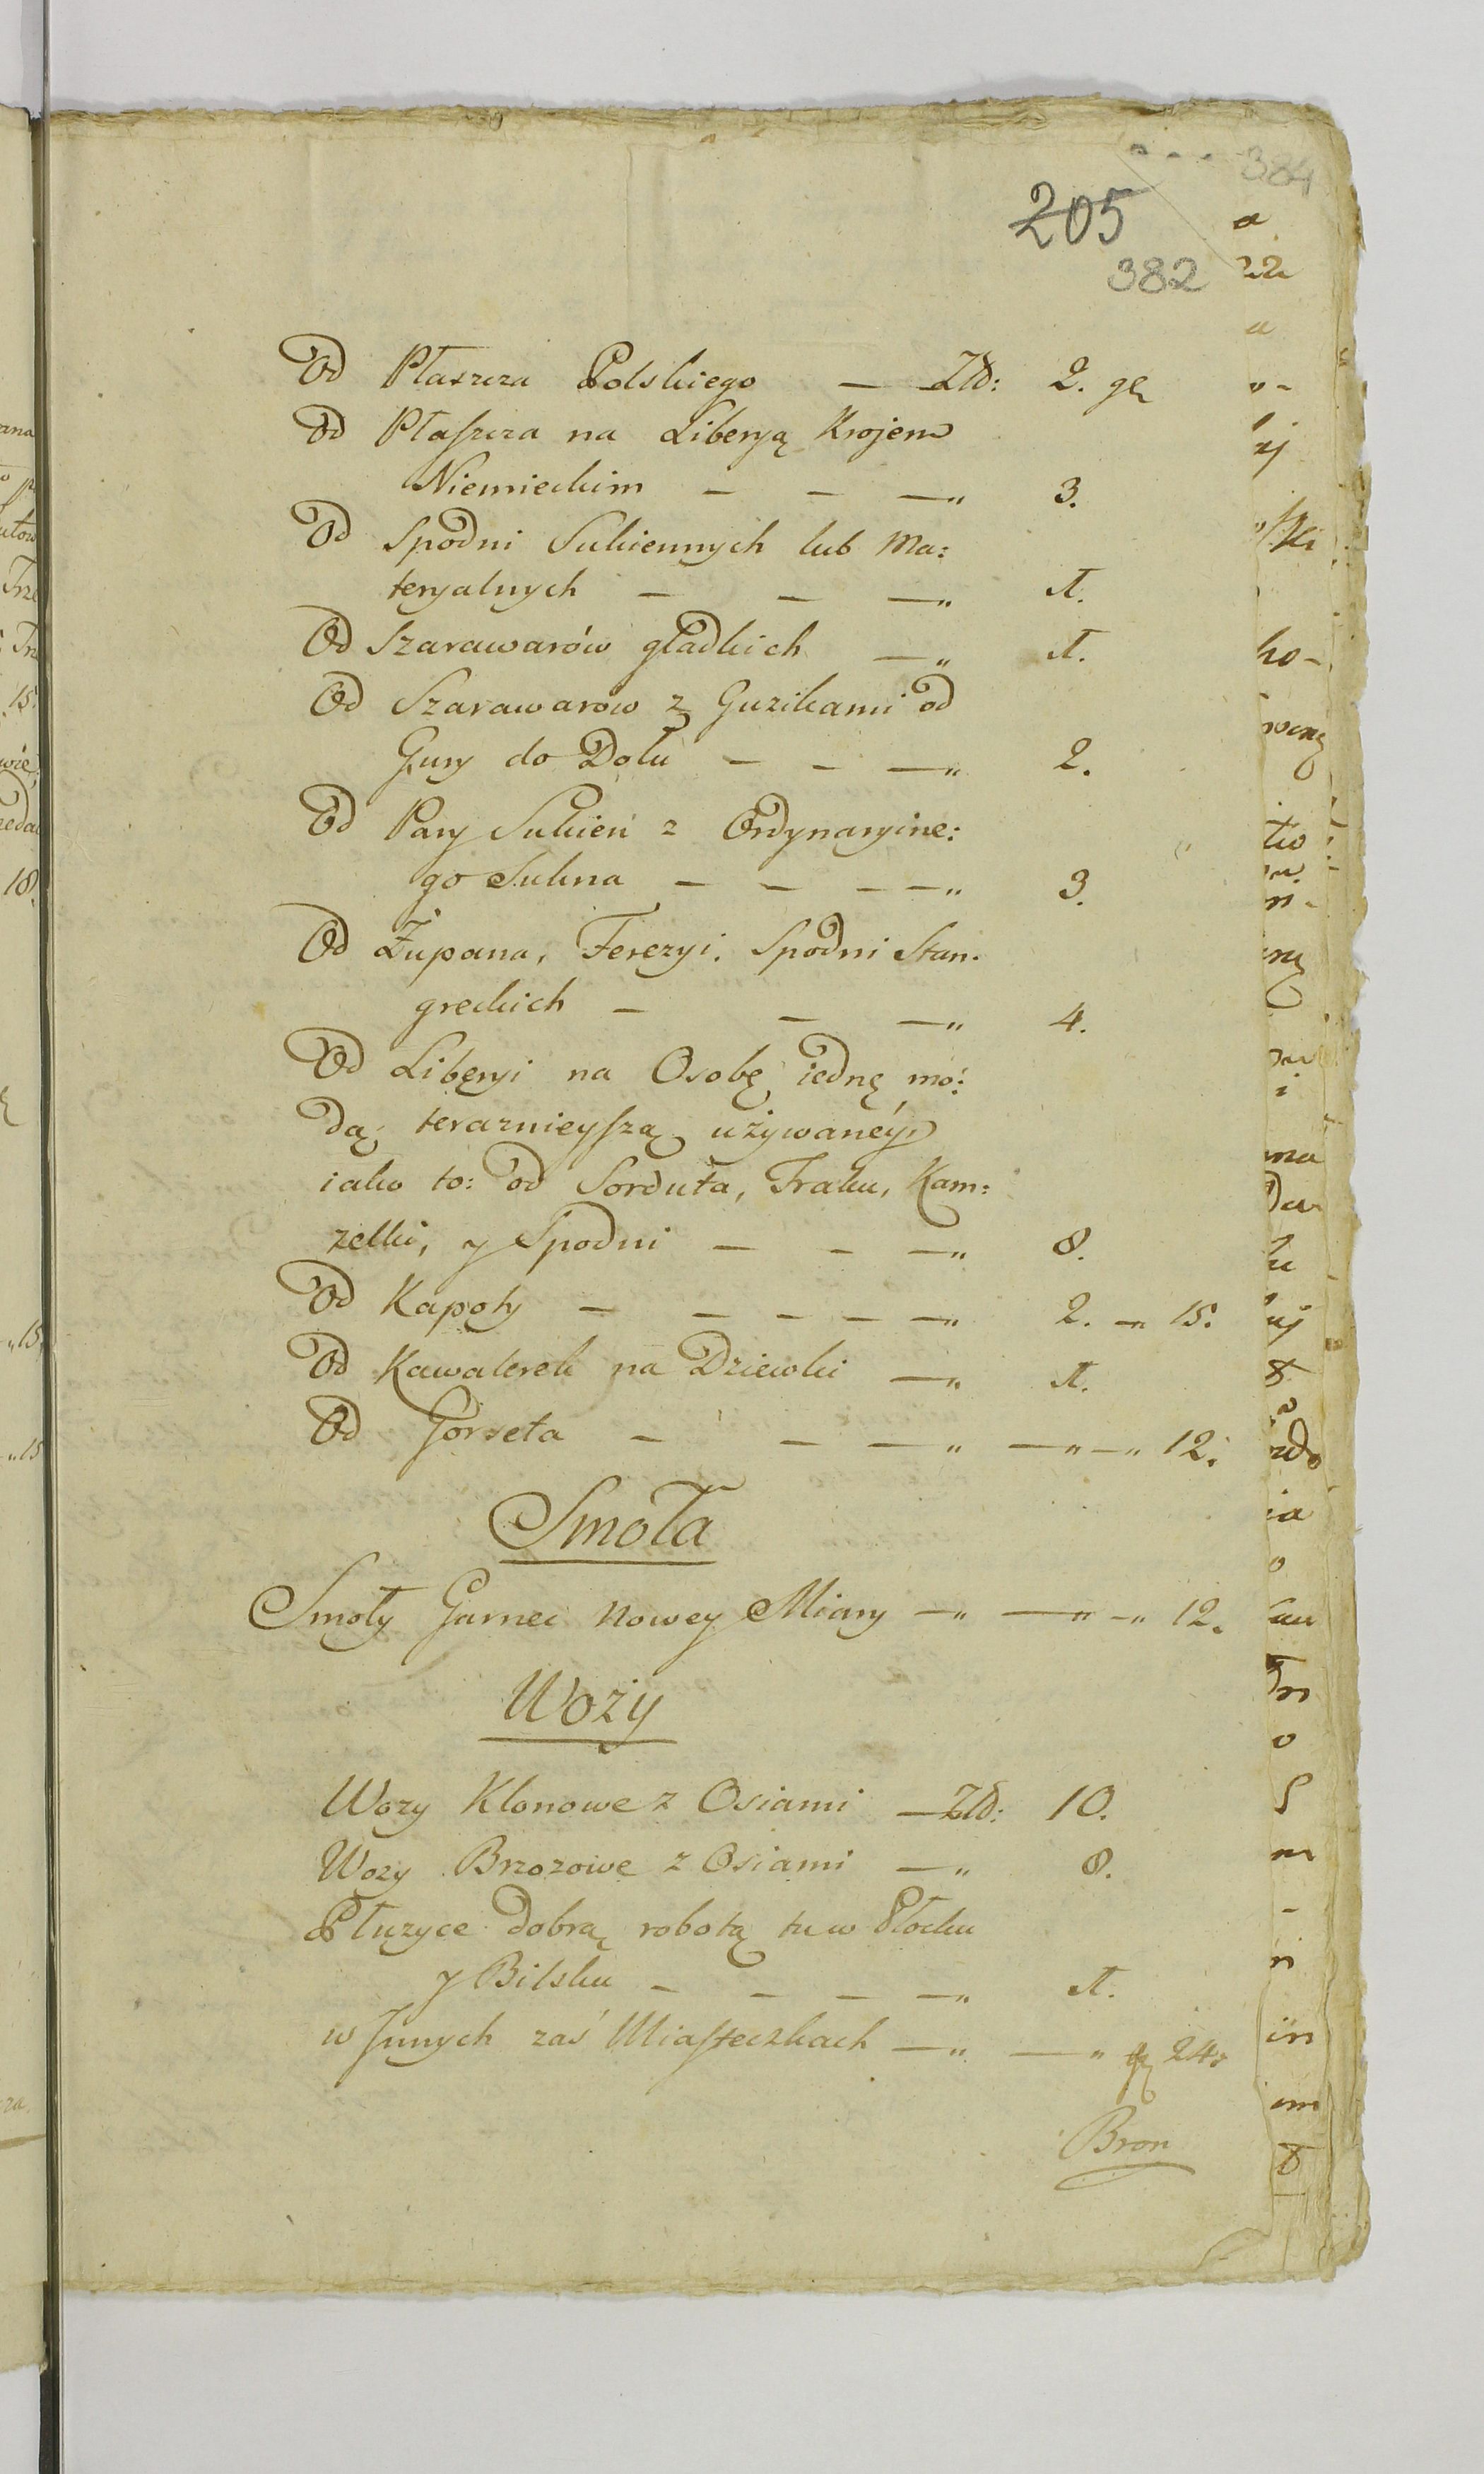 384
205
382
Od Płaszcza Polskiego — Złł: 2. gr
Od Płaszcza na Liberyą Krojem
Niemieckim — — —„ 3.
Od Spodni Sukiennych lub Ma:
teryalnych — — —„ 1.
Od Szarawarów gładkich —„ 1.
Od Szarawarow z Guzikami od
Gury do Dołu — — —„ 2.
Od Pary Sukień z Ordynaryine:
go Sukna — — — —„ 3.
Od Żupana, Ferezyi, Spodni Stan:
greckich — — —„ 4.
Od Liberyi na Osobę iednę mo:
dą teraznieyszą używanéy,
iako to: od Sorduta, Fraku, Kam:
zelki, y Spodni — — —„ 8.
Od Kapoty — — — — —„ 2. —„ 15.
Od Kawalerek na Dziewki —„ 1.
Od Gorseta — — —„ —„ —„ 12.
Smoła
Smoły Garnec nowey Miary —„ —„ —„ 12.
Wozy
Wozy Klonowe z Osiami — Złł: 10.
Wozy Brzozowe z Osiami —„ 8.
Płużyce dobrą robotą tu w Płocku
y Bilsku — — — —„ 1.
w Innych zaś Miasteczkach —„ —„ gr 24.
Bron